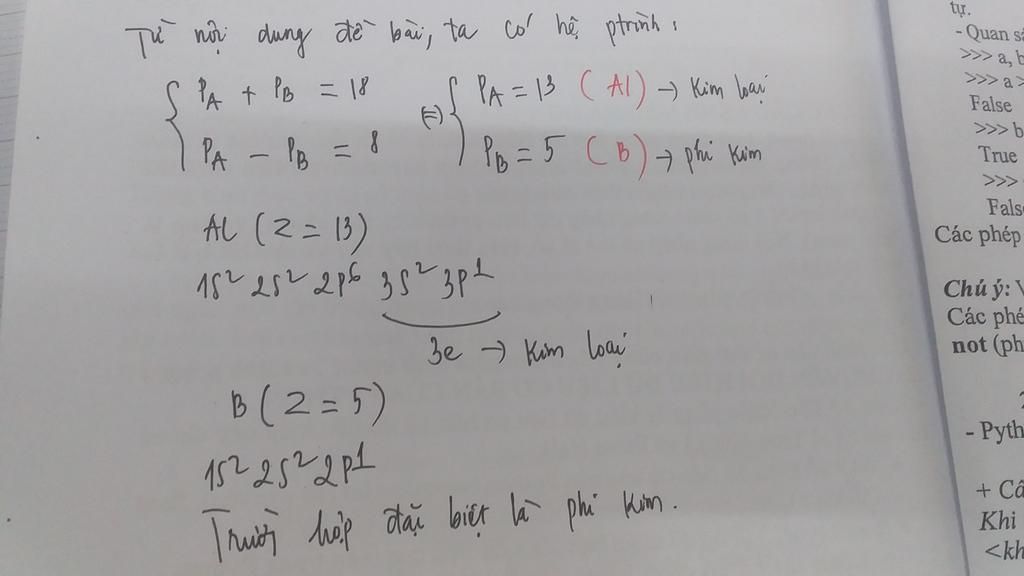 Từ nội dung đề bài, ta có hệ ptrình:
{ PA + PB = 18 (=) { PA = 13 (Al) → Kim loại
PA − PB = 8 PB = 5 (B) → phi kim
Al (Z = 13)
1s² 2s² 2p⁶ 3s² 3p¹
3e → Kim loại
B (Z = 5)
1s² 2s² 2p¹
Trường hợp đặc biệt là phi kim.
tự.
- Quan sá
>>> a, b
>>> a >
False
>>> b
True
>>>
Fals
Các phép
Chú ý: V
Các phé
not (ph
- Pyth
+ Câ
Khi
<kh